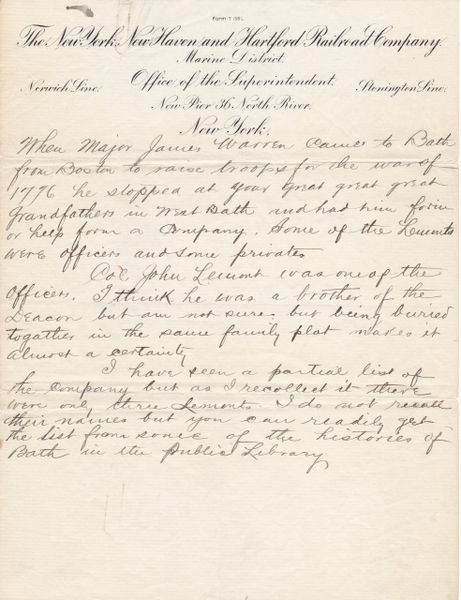 The New York, New Haven and Hartford Railroad Company.
Marine District.
Norwich Line. Office of the Superintendent. Stonington Line.
New Pier 36 North River.
New York,
When Major James Warren came to Bath
from Boston to raise troops for the war of
1776 he stopped at your great great great
Grandfathers in West Bath and had him form
or help form a Company. Some of the Lemonts
were officers and some privates
Col John Lemont was one of the
Officers. I think he was a brother of the
Deacon but am not sure but being buried
together in the same family plot makes it
almost a certainty
I have seen a partial list of
the company but as I recollect it there
were only three Lemonts. I do not recall
their names but you can readily get
the list from some of the histories of
Bath in the Public Library